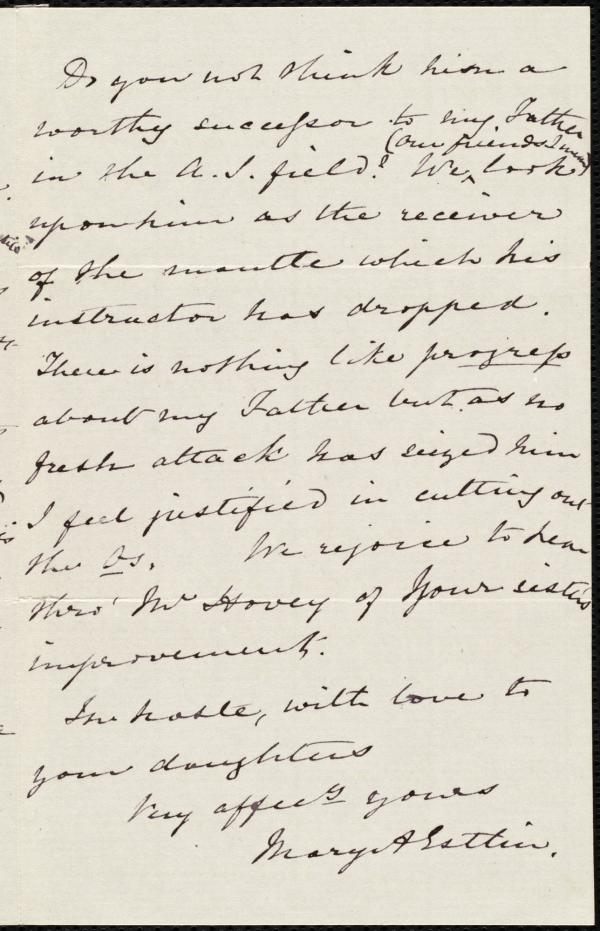 Do you not think him a
worthy successor to my Father
(our friends I mean)
in the A. S. field? We ^ look
upon him as the receiver
of the mantle which his
instructor has dropped.
There is nothing like progress
about my Father but as no
fresh attack has seized him
I feel justified in cutting out
the
We rejoice to hear
thro' Mr Hovey of Your sister's
improvement.
In haste, with love to
your daughters
Very affectly yours
Mary A Estlin.